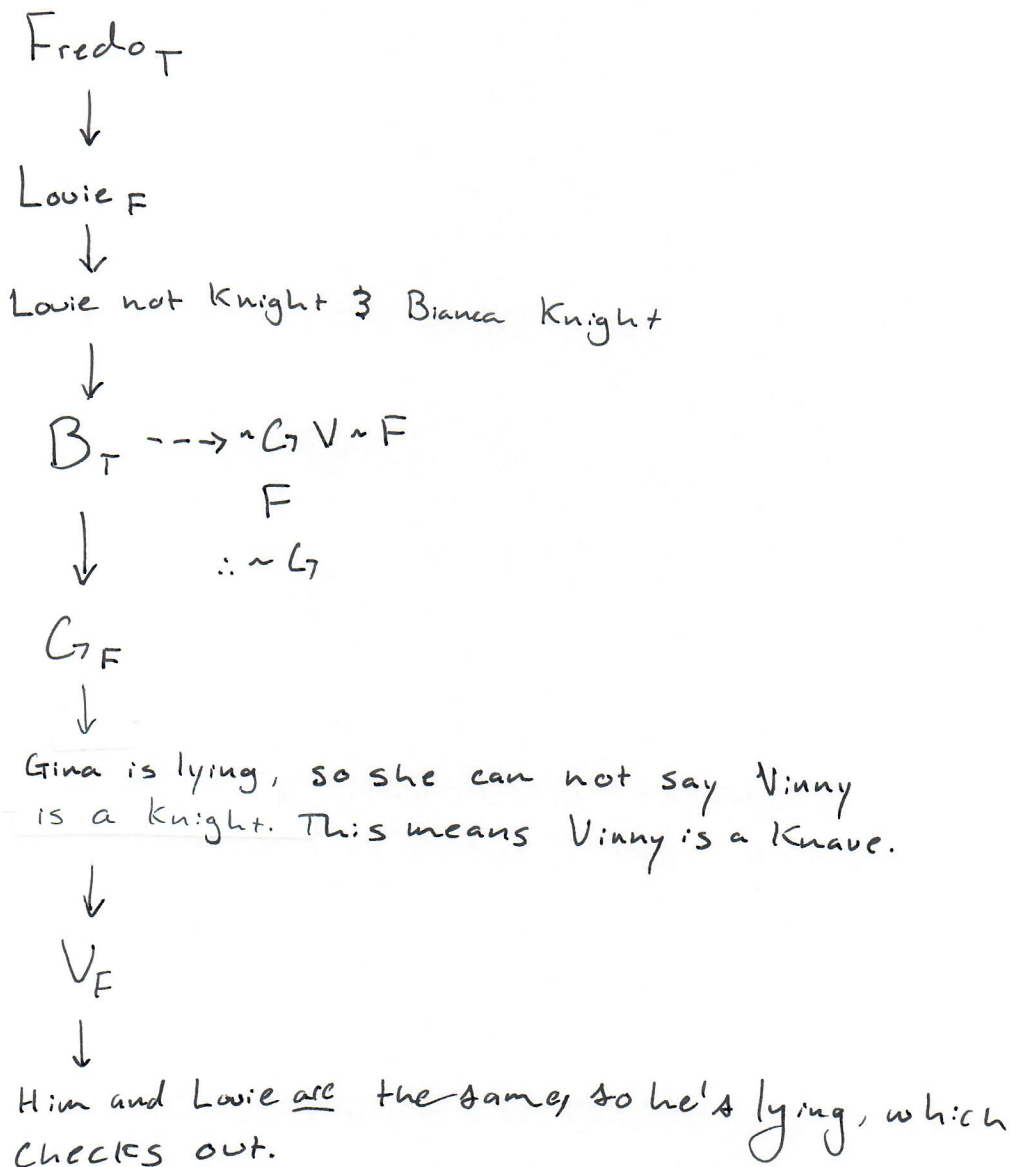 Fredo T
↓
Louie F
↓
Louie not Knight & Bianca Knight
↓
B T ---> ~G V ~F
F
↓ ∴ ~G
G F
↓
Gina is lying, so she can not say Vinny
is a Knight. This means Vinny is a Knave.
↓
V F
↓
Him and Louie are the same, so he's lying, which
checks out.